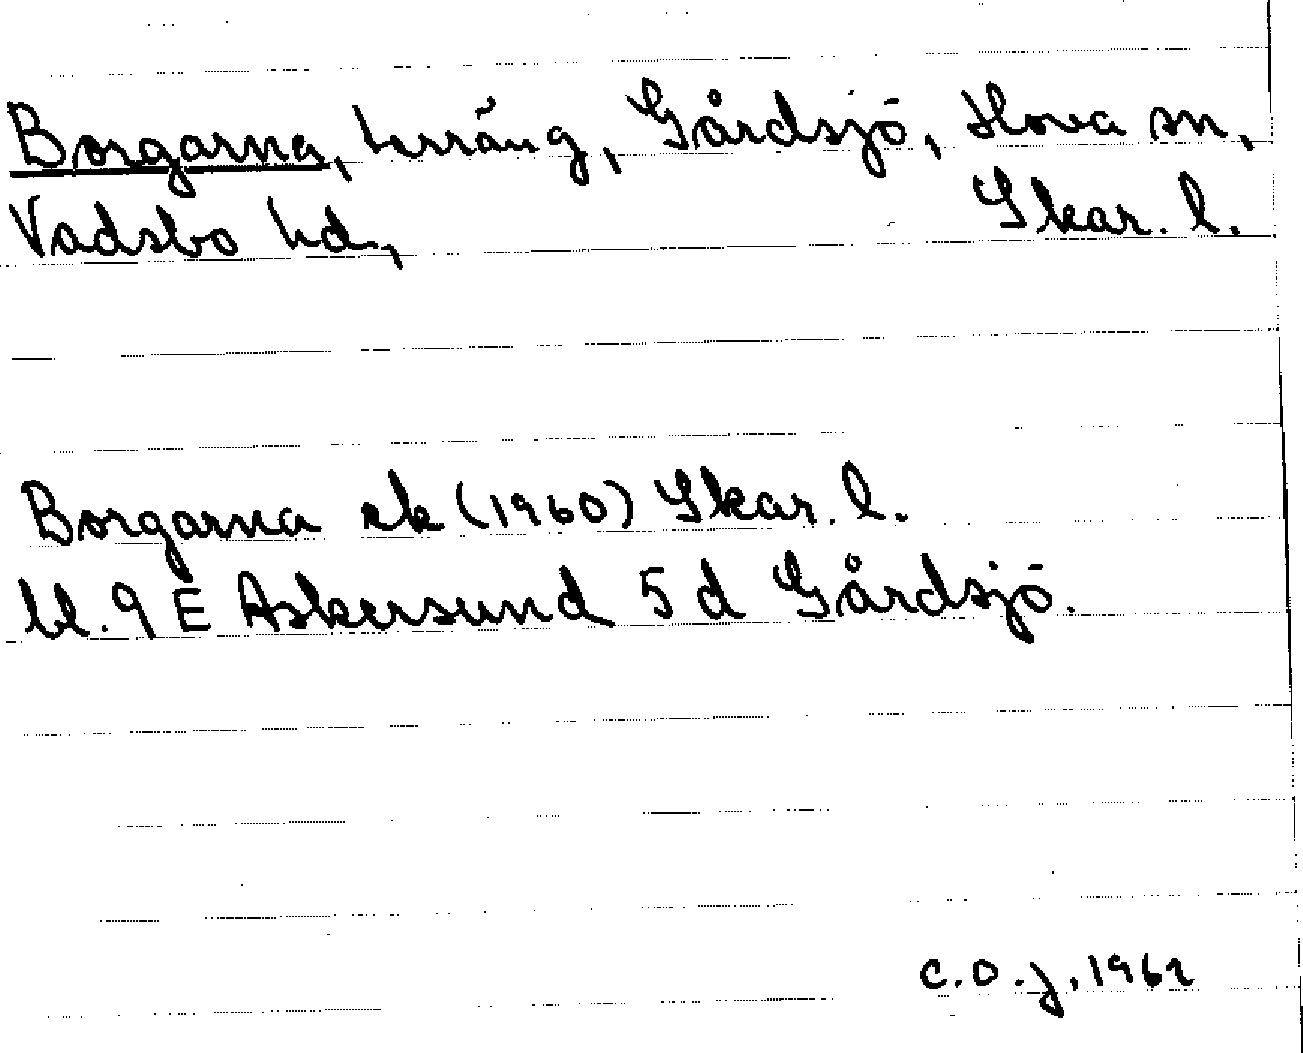 Borgarna, terräng, Gårdsjö, Hova sn,
Vadsbo hd, Skar. l.
Borgarna ek (1960) Skar. l.
bl. 9 E Askersund 5 d Gårdsjö.
C.O.J. 1962